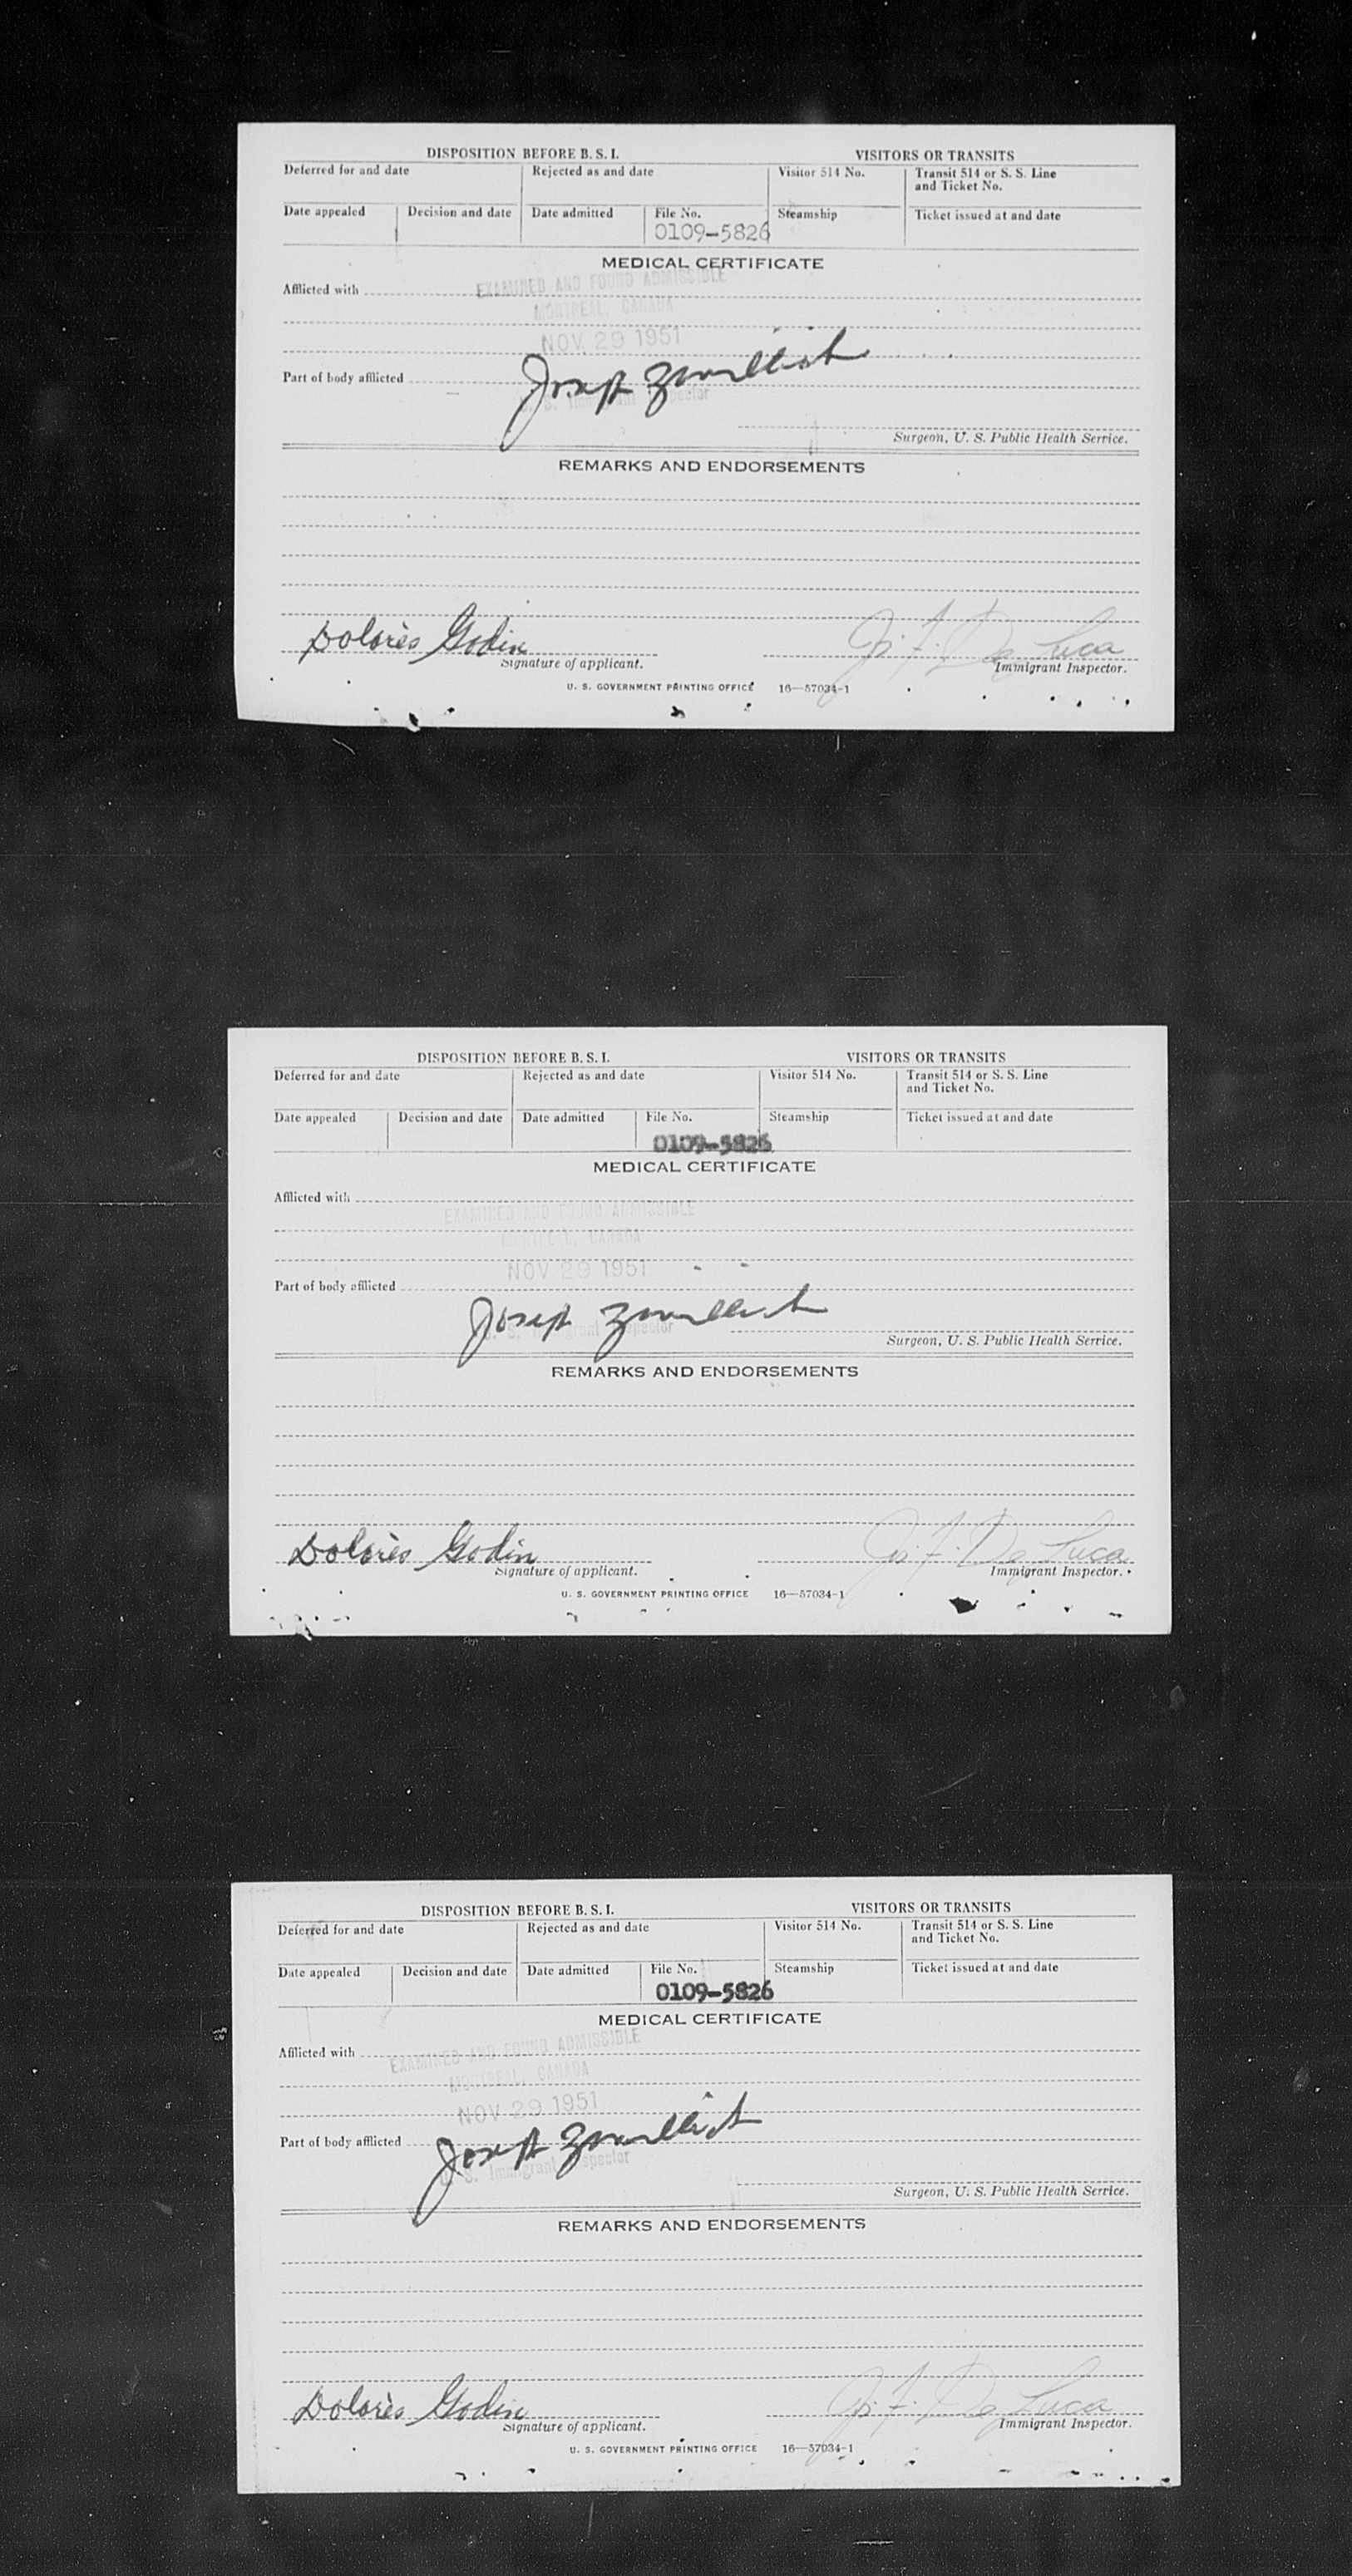 DISPOSITION BEFORE B. S. I. VISITORS OR TRANSITS
Deferred for and date Rejected as and date Visitor 514 No. Transit 514 or S. S. Line and Ticket No.
Date appealed Decision and date Date admitted File No. Steamship Ticket issued at and date
0109-5826
MEDICAL CERTIFICATE
EXAMINED AND FOUND ADMISSIBLE
Afflicted with
MONTREAL, CANADA
NOV 29 1951
Part of body afflicted Joseph
U. S. Immigrant Inspector
Surgeon, U. S. Public Health Service.
REMARKS AND ENDORSEMENTS
Dolorès Godin J. F. De Luca
Signature of applicant. Immigrant Inspector.
U. S. GOVERNMENT PRINTING OFFICE 16—57034-1
DISPOSITION BEFORE B. S. I. VISITORS OR TRANSITS
Deferred for and date Rejected as and date Visitor 514 No. Transit 514 or S. S. Line and Ticket No.
Date appealed Decision and date Date admitted File No. Steamship Ticket issued at and date
0109-5826
MEDICAL CERTIFICATE
Afflicted with
EXAMINED AND FOUND ADMISSIBLE
MONTREAL, CANADA
NOV 29 1951
Part of body afflicted
Joseph
U. S. Immigrant Inspector
Surgeon, U. S. Public Health Service.
REMARKS AND ENDORSEMENTS
Dolorès Godin J. F. De Luca
Signature of applicant. Immigrant Inspector.
U. S. GOVERNMENT PRINTING OFFICE 16—57034-1
DISPOSITION BEFORE B. S. I. VISITORS OR TRANSITS
Deferred for and date Rejected as and date Visitor 514 No. Transit 514 or S. S. Line and Ticket No.
Date appealed Decision and date Date admitted File No. Steamship Ticket issued at and date
0109-5826
MEDICAL CERTIFICATE
Afflicted with EXAMINED AND FOUND ADMISSIBLE
MONTREAL, CANADA
NOV 29 1951
Part of body afflicted Joseph
U. S. Immigrant Inspector
Surgeon, U. S. Public Health Service.
REMARKS AND ENDORSEMENTS
Dolorès Godin J. F. De Luca
Signature of applicant. Immigrant Inspector.
U. S. GOVERNMENT PRINTING OFFICE 16—57034-1